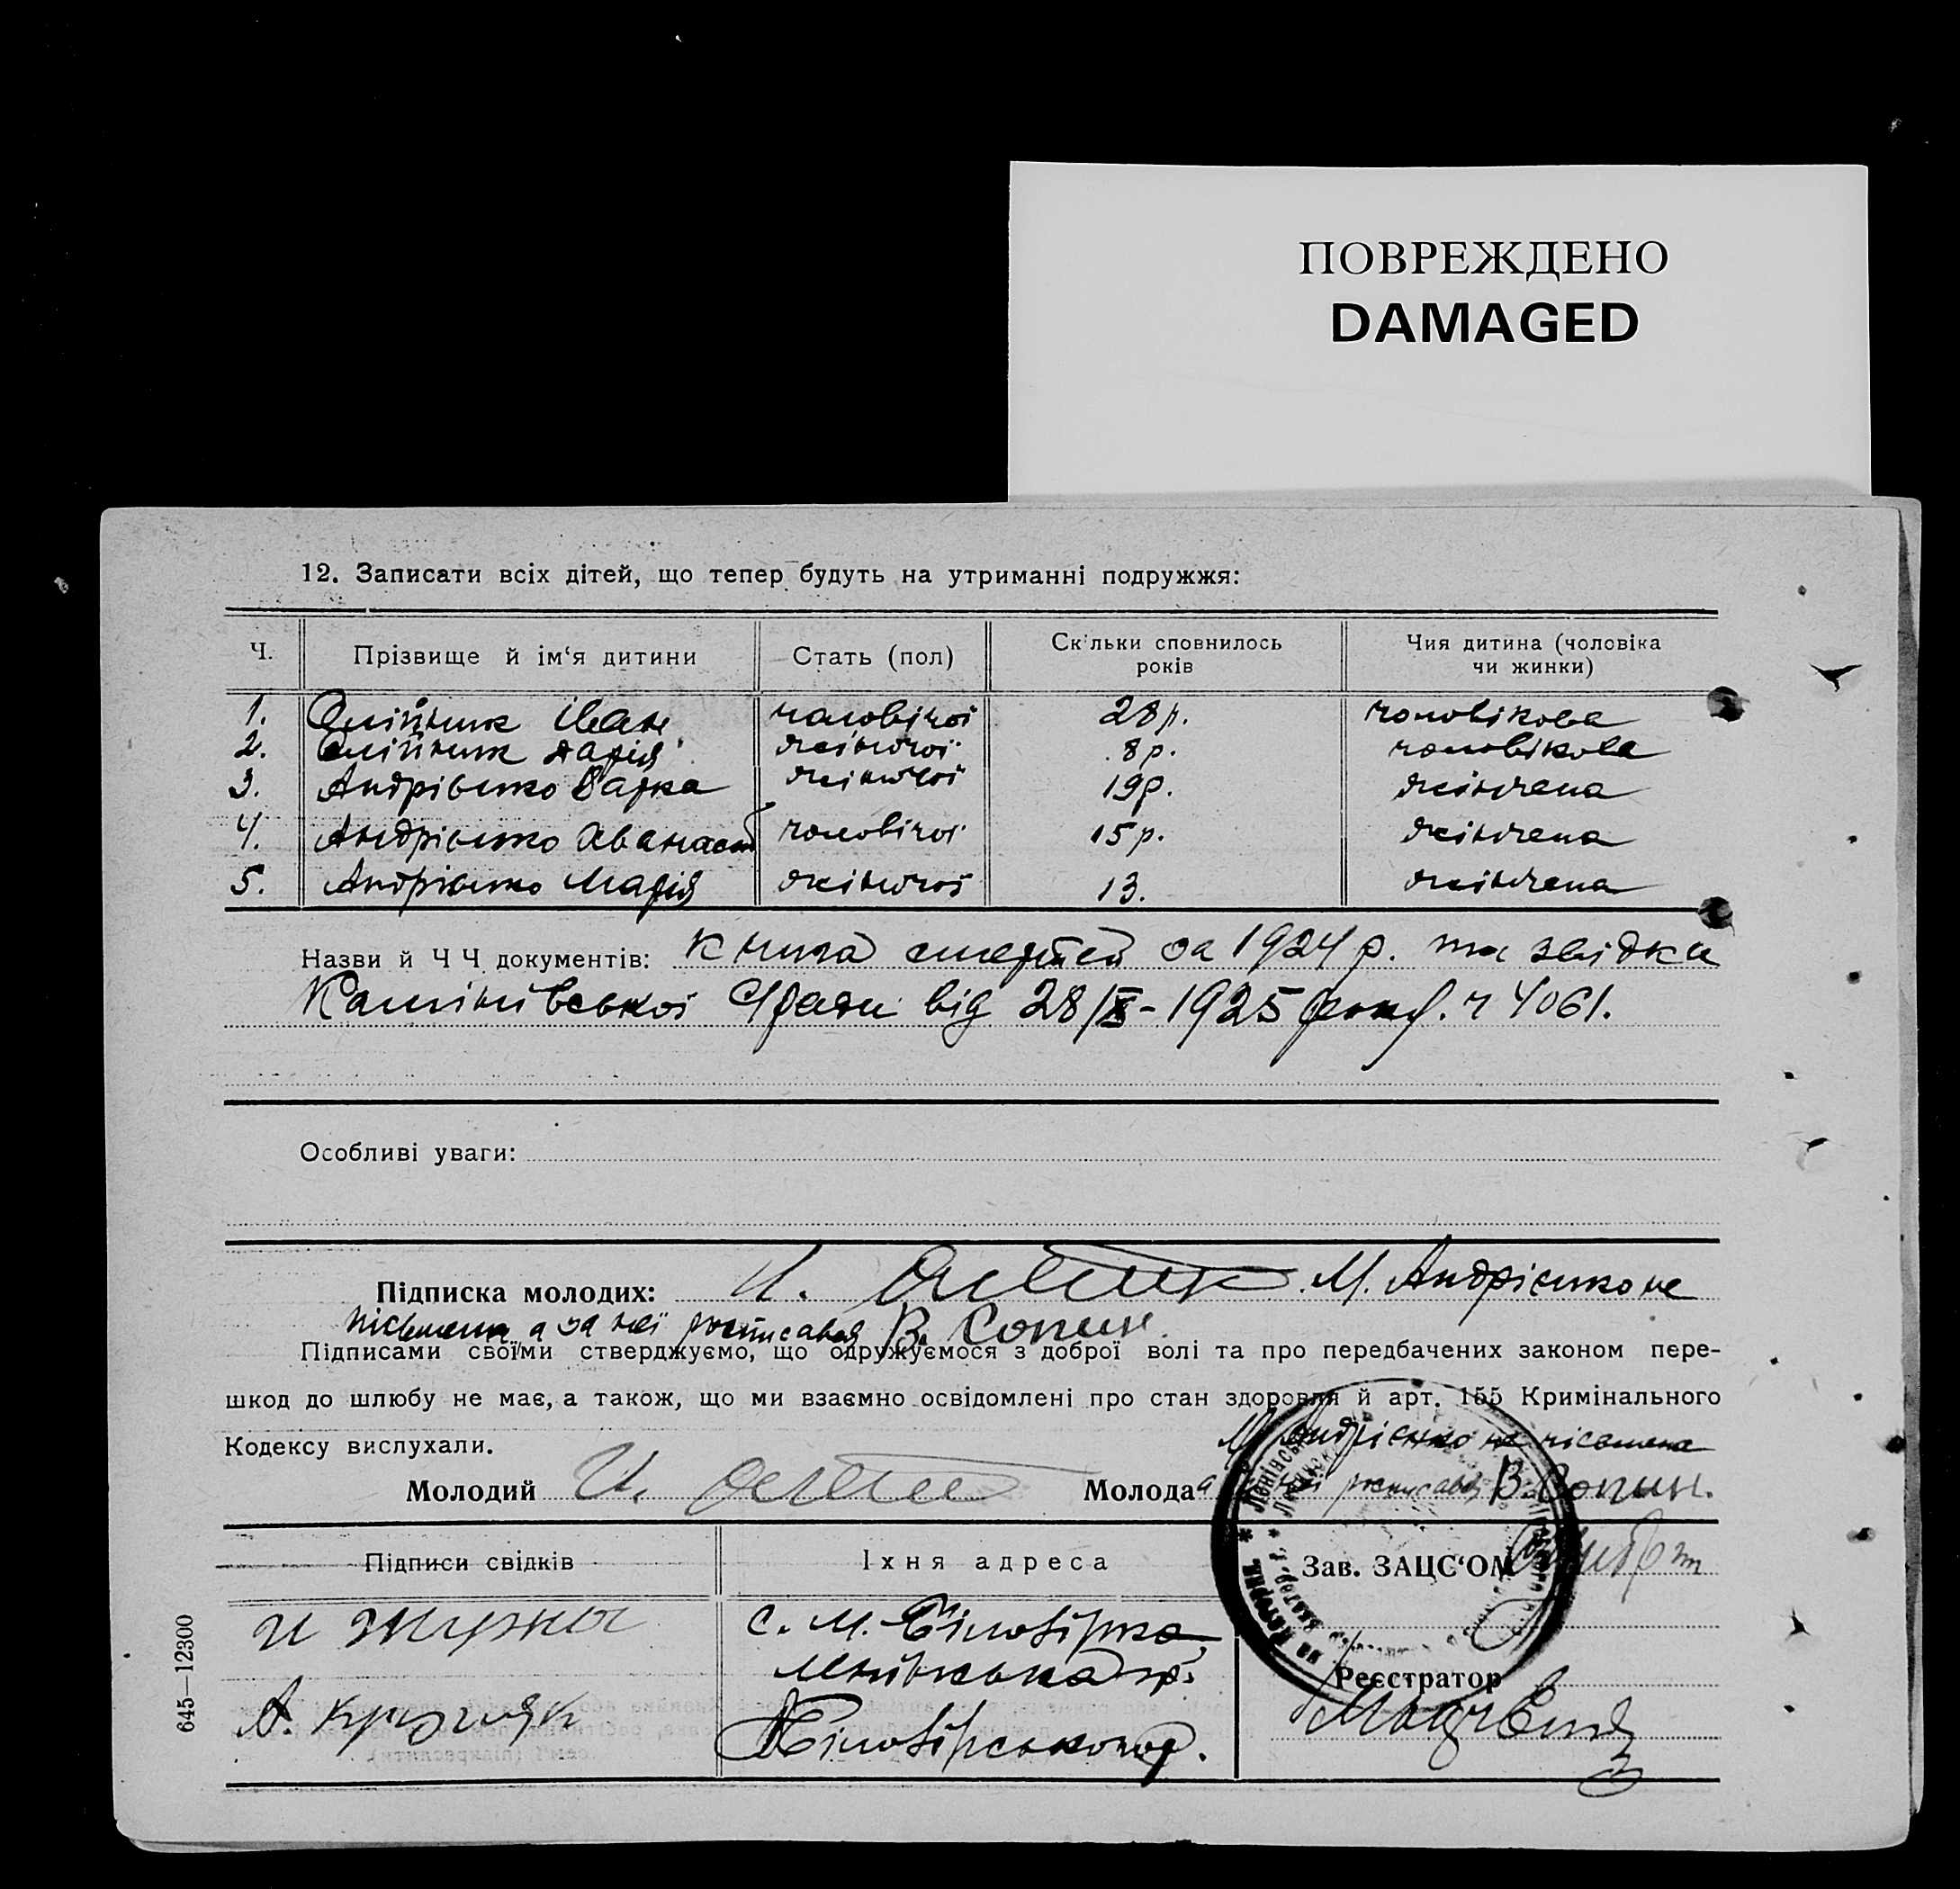 ПОВРЕЖДЕНО
DAMAGED
12. Записати всіх дітей, що тепер будуть на утриманні подружжя:
Ч. Прізвище й ім‘я дитини Стать (пол) Скільки сповнилось років Чия дитина (чоловіка чи жинки)
1. Олійник Іван чоловічої 28 р. чоловікова
2. Олійник Дарія жіночої 8 р. чоловікова
3. Андрієнко Варка жіночої 19 р. жінчена
4. Андрієнко Хванасій чоловічої 15 р. жінчена
5. Андрієнко Марія жіночої 13. жінчена
Назви й Ч Ч документів: книга смертей за 1924 р. та звідки
від 28/X-1925 року. ч 4061.
Особливі уваги:
Підписка молодих: И. М. Андрієнко не
письмена, а за неї росписався В. Сопин.
Підписами своїми стверджуємо, що одружуємося з доброї волі та про передбачених законом пере-
шкод до шлюбу не має, а також, що ми взаємно освідомлені про стан здоровля й арт. 155 Кримінального
Кодексу вислухали.
М. Андрієнко не письмена
Молодий И. Молода а за неї росписався В. Сопин.
Підписи свідків Їхня адреса Зав. ЗАЦС‘ОМ
с. М. Біловірка
А. Кругляк
Реєстратор
645—12300